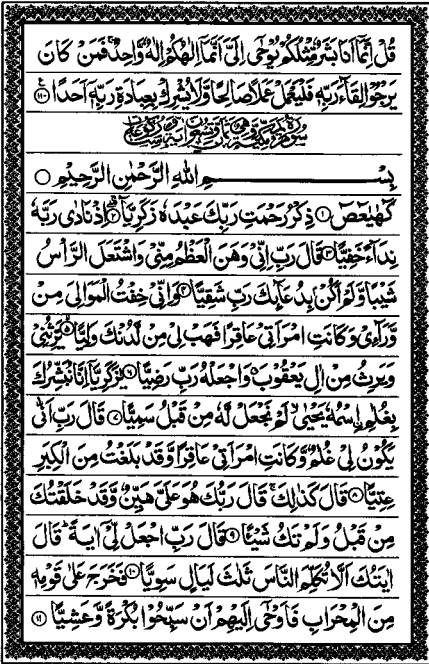 قُلْ اِنَّمَاۤ اَنَا بَشَرٌ مِّثْلُكُمْ يُوْحٰۤى اِلَیَّ اَنَّمَاۤ اِلٰهُكُمْ اِلٰهٌ وَّاحِدٌ ۚ فَمَنْ كَانَ
يَرْجُوْا لِقَآءَ رَبِّهٖ فَلْيَعْمَلْ عَمَلًا صَالِحًا وَّلَا يُشْرِكْ بِعِبَادَةِ رَبِّهٖۤ اَحَدًا ۝۱۱۰
بِسْمِ اللهِ الرَّحْمٰنِ الرَّحِيْمِ ۝
كٓهٰيٰعٓصٓ ۝۱ ذِكْرُ رَحْمَتِ رَبِّكَ عَبْدَهٗ زَكَرِيَّا ۝۲ اِذْ نَادٰى رَبَّهٗ
نِدَآءً خَفِيًّا ۝۳ قَالَ رَبِّ اِنِّیْ وَهَنَ الْعَظْمُ مِنِّیْ وَاشْتَعَلَ الرَّاْسُ
شَيْبًا وَّلَمْ اَكُنْۢ بِدُعَآئِكَ رَبِّ شَقِيًّا ۝۴ وَاِنِّیْ خِفْتُ الْمَوَالِیَ مِنْ
وَّرَآءِیْ وَكَانَتِ امْرَاَتِیْ عَاقِرًا فَهَبْ لِیْ مِنْ لَّدُنْكَ وَلِيًّا ۝۵ يَّرِثُنِیْ
وَيَرِثُ مِنْ اٰلِ يَعْقُوْبَ ۖ وَاجْعَلْهُ رَبِّ رَضِيًّا ۝۶ يٰزَكَرِيَّاۤ اِنَّا نُبَشِّرُكَ
بِغُلٰمِ اِۨسْمُهٗ يَحْيٰى ۙ لَمْ نَجْعَلْ لَّهٗ مِنْ قَبْلُ سَمِيًّا ۝۷ قَالَ رَبِّ اَنّٰى
يَكُوْنُ لِیْ غُلٰمٌ وَّكَانَتِ امْرَاَتِیْ عَاقِرًا وَّقَدْ بَلَغْتُ مِنَ الْكِبَرِ
عِتِيًّا ۝۸ قَالَ كَذٰلِكَ ۚ قَالَ رَبُّكَ هُوَ عَلَیَّ هَيِّنٌ وَّقَدْ خَلَقْتُكَ
مِنْ قَبْلُ وَلَمْ تَكُ شَيْئًا ۝۹ قَالَ رَبِّ اجْعَلْ لِّیْۤ اٰيَةً ؕ قَالَ
اٰيَتُكَ اَلَّا تُكَلِّمَ النَّاسَ ثَلٰثَ لَيَالٍ سَوِيًّا ۝۱۰ فَخَرَجَ عَلٰى قَوْمِهٖ
مِنَ الْمِحْرَابِ فَاَوْحٰۤى اِلَيْهِمْ اَنْ سَبِّحُوْا بُكْرَةً وَّعَشِيًّا ۝۱۱